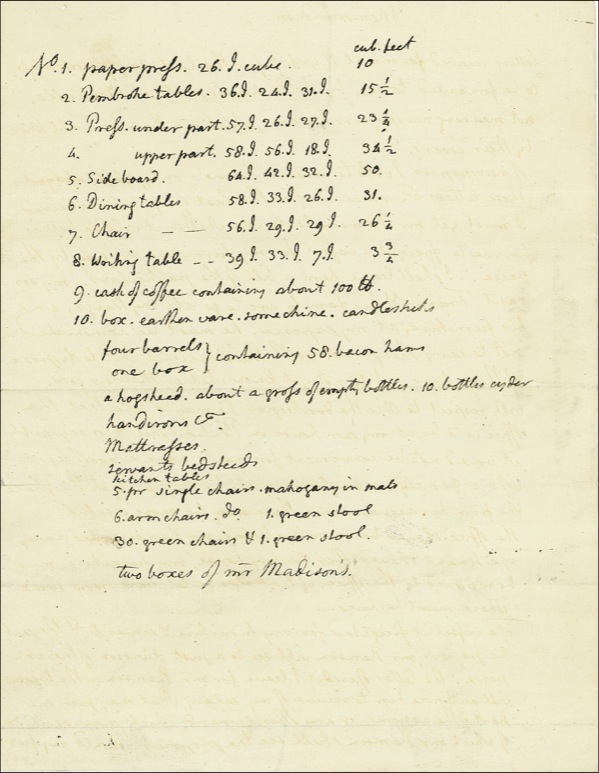 cub. feet
No. 1. paper press. 26. I. cube. 10
2. Pembroke tables. 36. I. 24. I. 31. I. 15 1/2
3. Press. under part. 57. I. 26. I. 27. I. 23 1/4
4. upper part. 58. I. 56. I. 18. I. 34 1/2
5. Sideboard. 64. I. 42. I. 32. I. 50.
6. Dining tables 58. I. 33. I. 26. I. 31.
7. Chair — — 56. I. 29. I. 29. I. 26 1/4
8. Writing table - - 39 I. 33. I. 7. I. 3 3/4
9. cask of coffee containing about 100 ℔.
10. box. earthen ware. some chine. candlesticks
four barrels } containing 58. bacon hams
one box
a hogshead. about a gross of empty bottles. 10. bottles cyder
handirons &c.
Mattresses.
servants bedsteads
kitchen tables
5. pr single chairs. mahogany in mats
6. arm chairs. do 1. green stool
30. green chairs & 1. green stool.
two boxes of mr Madison's.